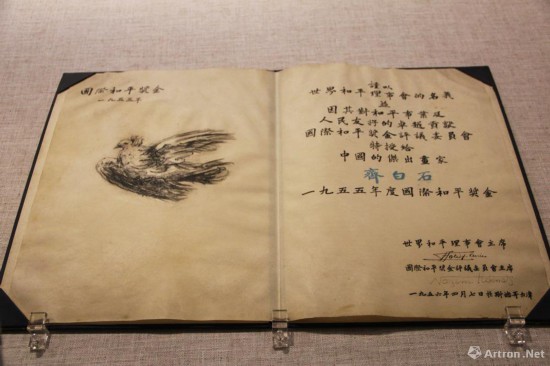 國際和平獎金
一九五五年
謹以
世界和平理事會的名義
並
因其對和平事業及
人民友好的卓越貢獻
國際和平獎金評議委員會
特授給
中國的傑出畫家
齊白石
一九五五年度國際和平獎金
世界和平理事會主席
國際和平獎金評議委員會主席
一九五六年四月七日
Artron.Net